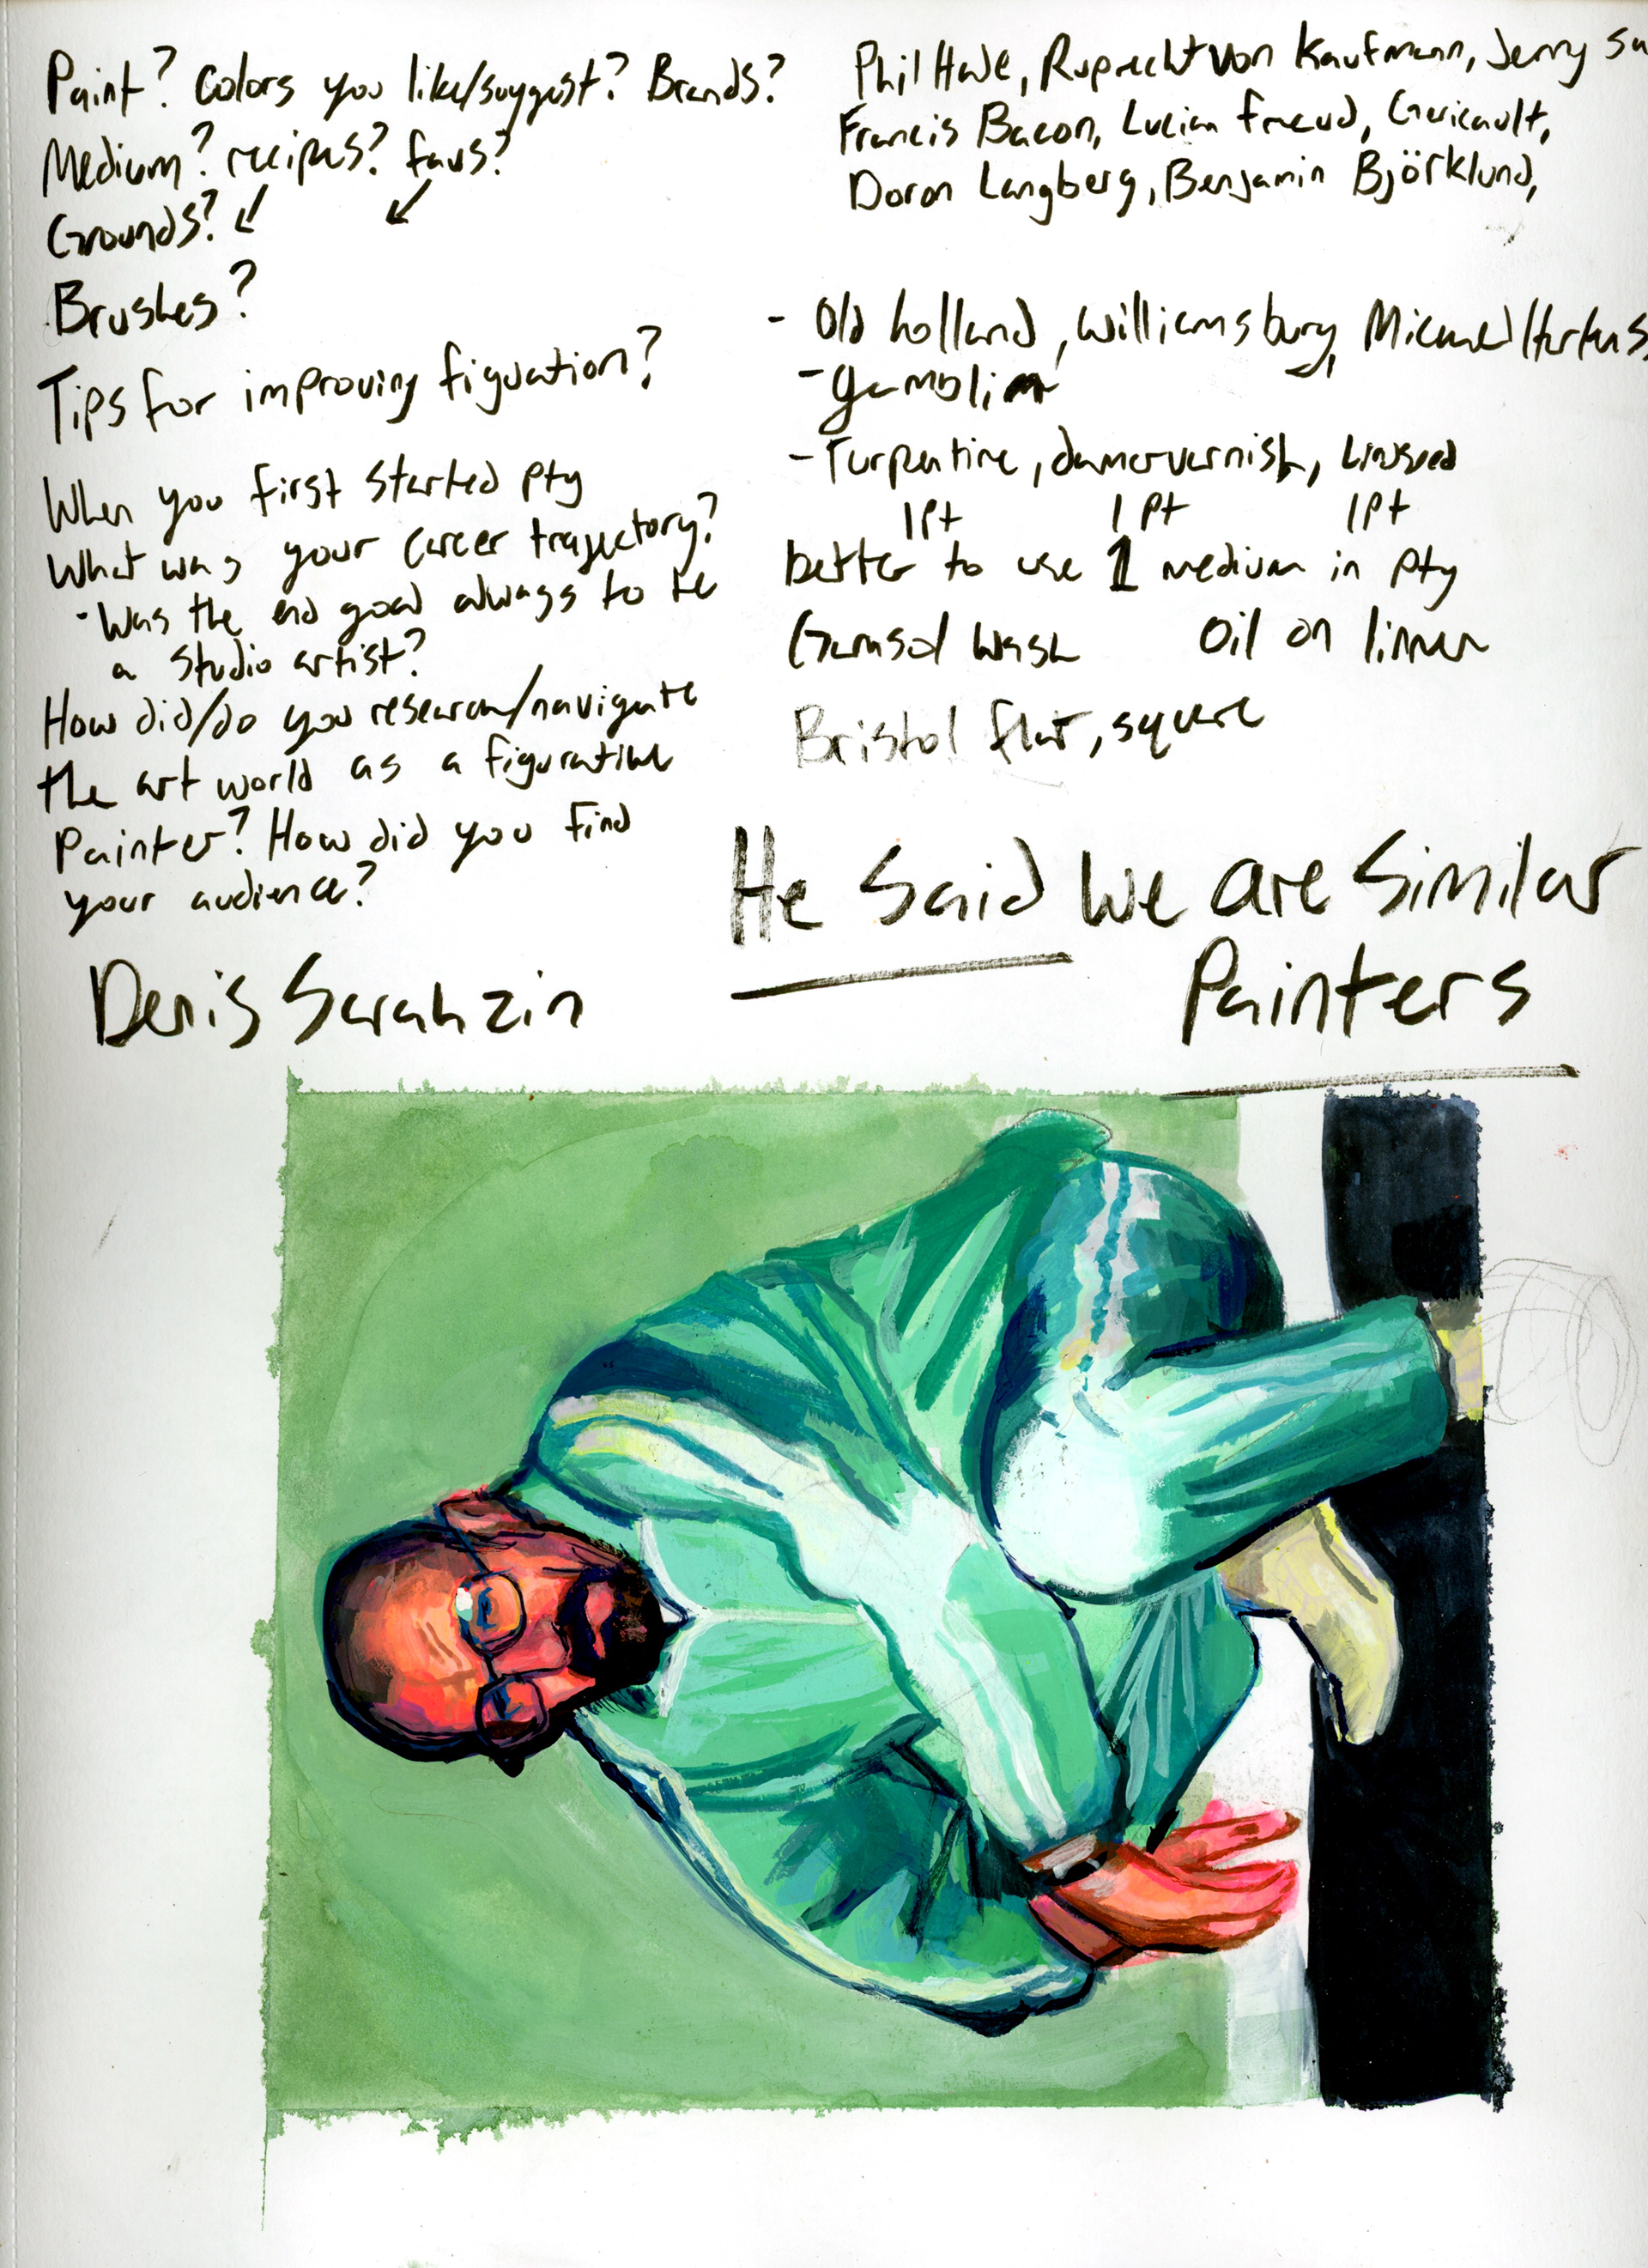 Paint? Colors you like/suggest? Brands?
Medium? recipes? favs?
Grounds?
Brushes?
Tips for improving figuration?
When you first started ptg
What was your career trajectory?
- Was the end goal always to be
a studio artist?
How did/do you research/navigate
the art world as a figurative
Painter? How did you find
your audience?
Denis Sarahzin
Phil Hale, Ruprecht von Kaufmann, Jenny Sa
Francis Bacon, Lucian Freud, Gericault,
Doron Langberg, Benjamin Björklund,
- Old holland, Williamsburg, Michael Harding
- Gamblin
- Turpentine, damarvarnish, Linseed
1pt 1pt 1pt
better to use 1 medium in ptg
Gamsol wash Oil on linen
Bristol flat, square
He Said We are Similar
Painters